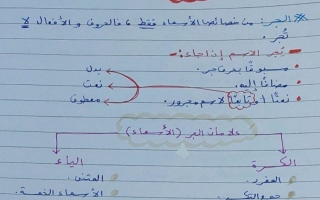 الجر: من خصائص الأسماء فقط، فالحروف والأفعال لا
تُجر.
يُجر الاسم إن جاء:
مسبوقًا بحرف جر.
مضافًا إليه.
نعتًا أو تابعًا لاسم مجرور.
بدل
نعت
معطوف
علامات الجر (الأسماء)
الكسرة
الياء
المفرد.
المثنى.
جمع التكسير
الأسماء الخمسة.